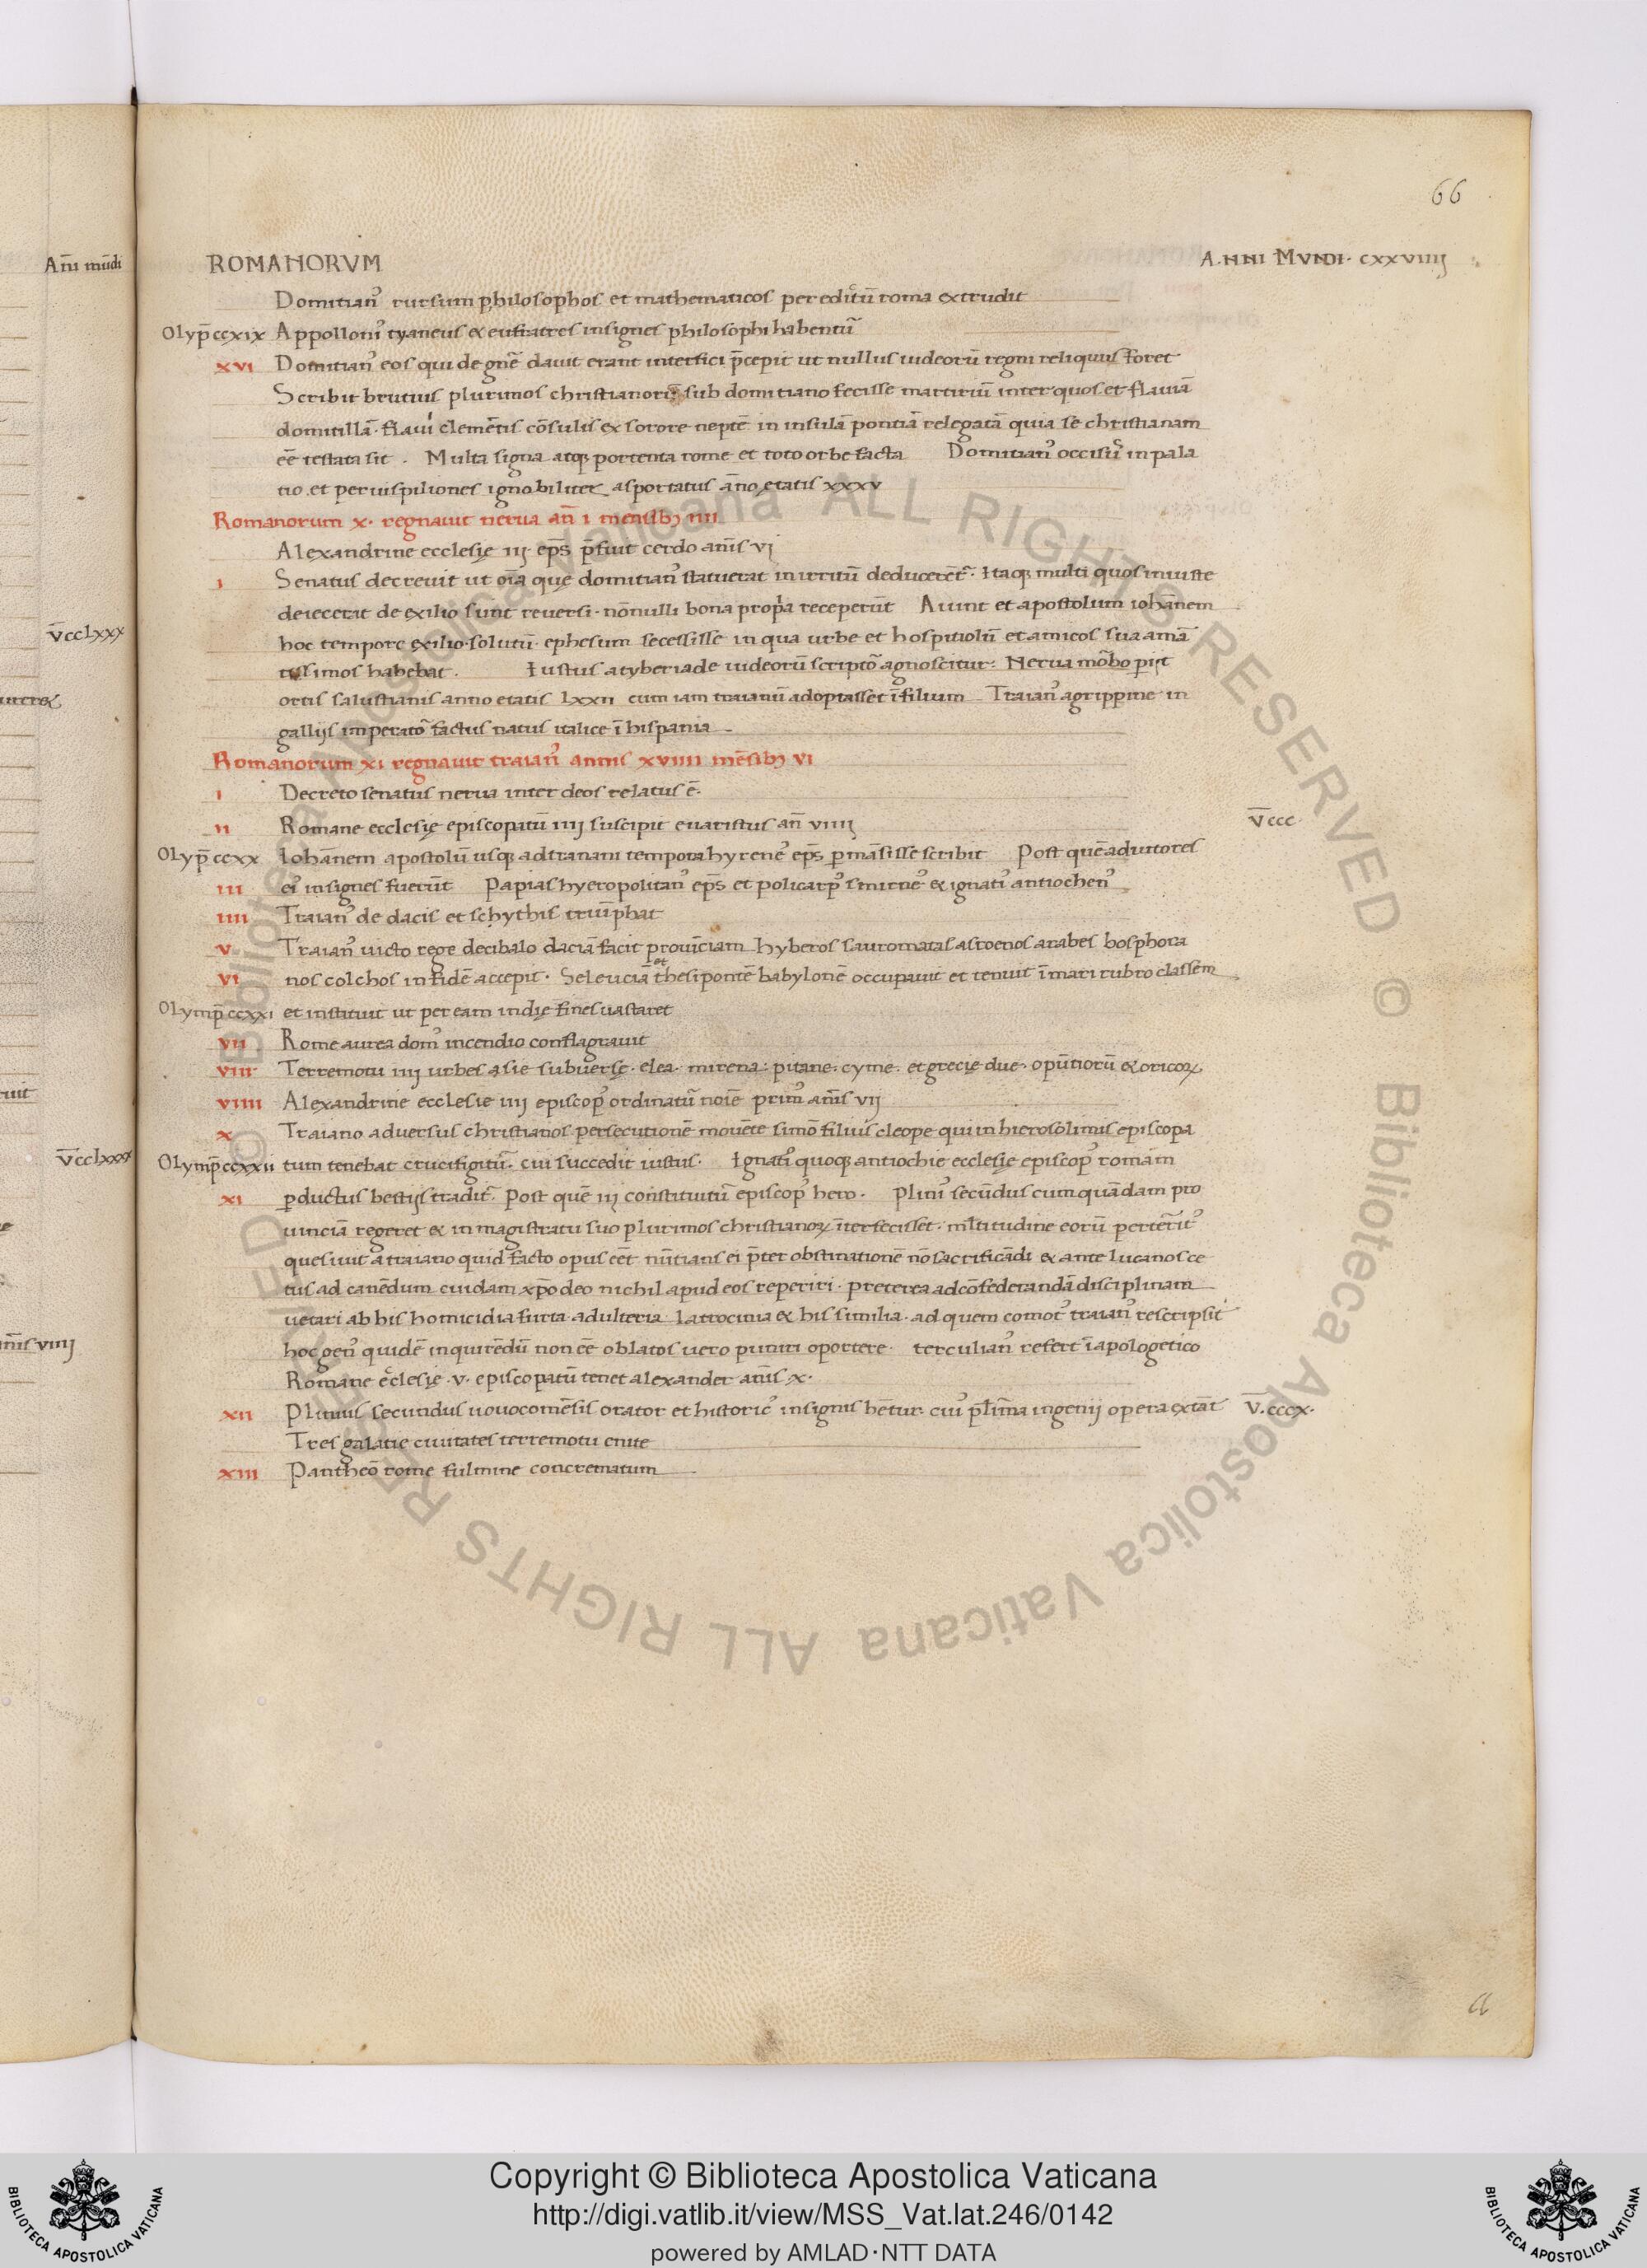 66
Am̄ mūdi
ROMANORVM
ANNI MVNDI · CXXVIIIJ
Domitian⁹ rursum philosophos et mathematicos per edictū roma extrudit
Olyp̄ ccxix Appolloni⁹ tyaneus & eufrates insignes philosophi habentur̄
xvi Domitian⁹ eos qui de gn̄e dauit erant interfici p̄cepit ut nullus iudeorū regni reliquus foret
Scribit brutius plurimos christianorū sub domitiano fecisse martiriū inter quos et flauiā
domitillā · flaui clemētis cōsulis ex sorore neptē in insulā pontiā relegatā quia se christianam
eē testata sit . Multa signa atq; portenta rome et toto orbe facta Domitian⁹ occisus in pala
tio et per uispiliones ignobiliter asportatus āno ętatis xxxv
Romanorum x · regnauit nerua an̄ i mensib; iiii
Alexandrine ecclesię iij · ep̄s p̄fuit cerdo an̄is vj
i Senatus decreuit ut oīa que domitian⁹ statuerat in irritū deducerēt̄ · Itaq; multi quos iniuste
deiecerat de exilio sunt reuersi · nōnulli bona propria receperūt Aiunt et apostolum iohānem
v̄cclxxx
hoc tempore exilio solutū ephesum secessisse in qua urbe et hospitiolū et amicos sui amā
tissimos habebat . Iustus a tyberiade iudeorū scriptor̄ agnoscitur: Nerua mōbo perijt
ortis salustianis anno etatis lxxii cum iam traianū adoptasset ī filium Traian⁹ agrippine in
gallijs imperator̄ factus natus italice ī hispania
Romanorum xi regnauit traian⁹ annis xviiii mēsib; vi
i Decreto senatus nerua inter deos relatus ē.
ii Romane ecclesię episcopatū iiij suscipit euaristus an̄ viiij
v̄ccc
Olyp̄ ccxx Iohānem apostolū usq; ad traiani tempora hyrene⁹ ep̄s p̄māsisse scribit Post quē aduitores
iii ei⁹ insignes fuerūt Papias hyeropolitan⁹ ep̄s et policarp⁹ smirne⁹ & ignati⁹ antiochen⁹
iiii Traian⁹ de dacis et schythis triūphat
v Traian⁹ uicto rege decibalo daciā facit prouīciam hyberos sauromatas asroenos arabes bosphora
vi nos colchos in fidē accepit · Seleuciā et thesipontē babylonē occupauit et tenuit ī mari rubro classem
Olymp̄ ccxxi et instituit ut per eam indię fines uastaret
vii Rome aurea dom⁹ incendio conflagrauit
viii Terremotu iiij urbes asie subuerse · elea · mirena: pitane · cyme · et grecię due · opūtiorū & oricorꝝ
viiii Alexandrine ecclesie iiij episcop⁹ ordinatur̄ noīe prim⁹ an̄is vij
x Traiano aduersus christianos persecutionē mouēte simō filius cleope qui in hierosolimis episcopa
v̄cclxxxx
Olymp̄ ccxxii tum tenebat crucifigitur̄ · cui succedit iustus · Ignati⁹ quoq; antiochie ecclesię episcop⁹ romam
xi p̄ductus bestijs tradit̄ · Post quē iij constituitur̄ episcop⁹ hero · Plini⁹ secūdus cum quādam pro
uinciā regeret & in magistratu suo plurimos christianorꝝ īterfecisset · ml̄titudine eorū perterrit⁹
quesiuit a traiano quid facto opus eēt nūtians ei p̄ter obstinationē nō sacrificādi & ante lucanos ce
tus ad canēdum cuidam xp̄o deo nichil apud eos reperiri · preterea ad cōfederandā disciplinam
uetari ab his homicidia furta adulteria latrocinia & his similia · ad quem comot⁹ traian⁹ rescripsit
an̄is viiij
hoc gen⁹ quidē inquirēdū non eē oblatos uero puniri oportere · terculian⁹ refert ī apologetico
Romane ecclesię · v · episcopatū tenet alexander an̄is x ·
xii Plinius secundus nouocomēsis orator et historic⁹ insignis hētur · cui⁹ pl̄īma ingenij opera extāt
v̄.cccx ·
Tres galatie ciuitates terremotu erute
xiii Pantheō rome fulmine concrematum
a
© Biblioteca Apostolica Vaticana ALL RIGHTS RESERVED © Biblioteca Apostolica Vaticana ALL RIGHTS RESERVED
Copyright © Biblioteca Apostolica Vaticana
http://digi.vatlib.it/view/MSS_Vat.lat.246/0142
powered by AMLAD·NTT DATA
BIBLIOTECA APOSTOLICA VATICANA
BIBLIOTECA APOSTOLICA VATICANA